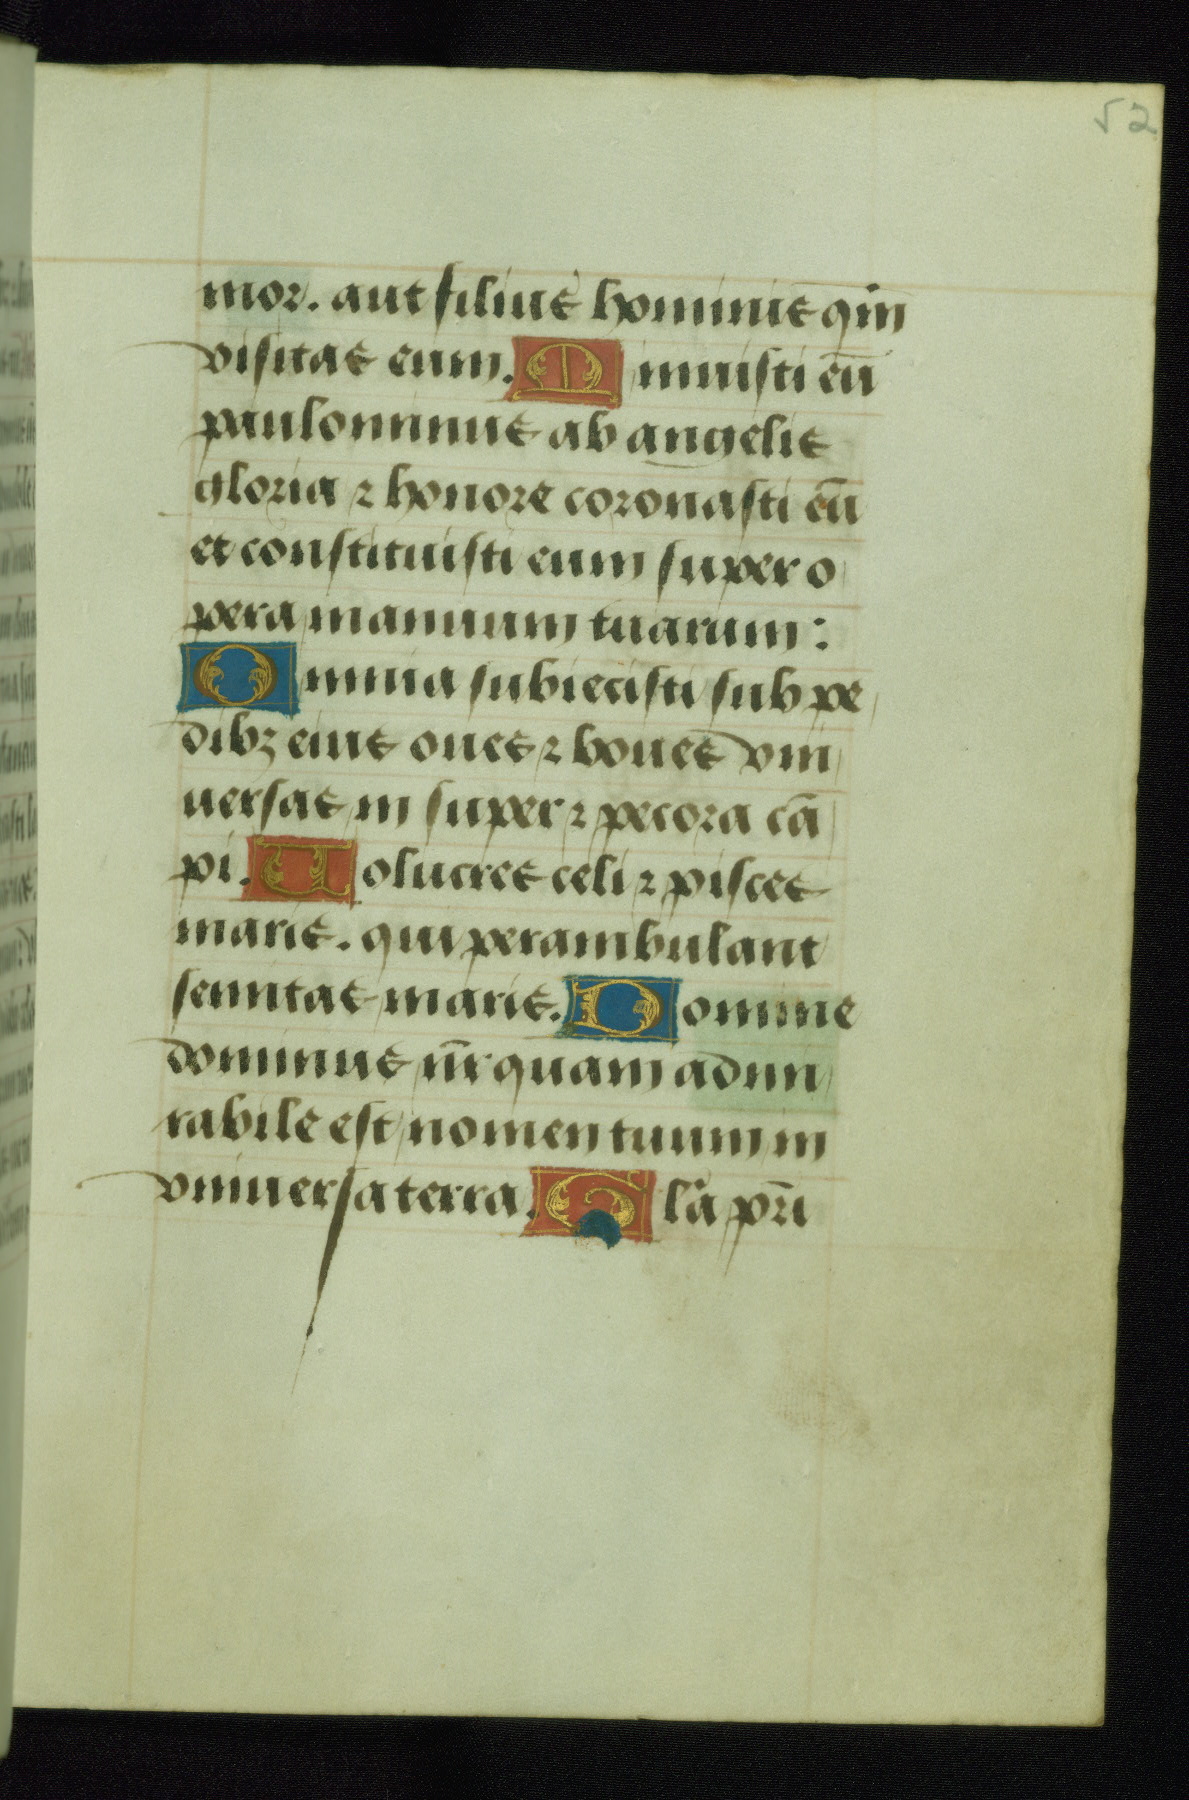 52
mor. aut filius hominis qm̄
visitas eum. Minuisti eū
paulominus ab angelis
gloria ⁊ honore coronasti eū
et constituisti eum super o
pera manuum tuarum:
Omnia subiecisti sub pe
dibꝫ eius oues ⁊ boues vni
uersas in super ⁊ pecora cā
pi. Uolucres celi ⁊ pisces
maris. qui perambulant
semitas maris. Domine
dominus nr̄ quam admi
rabile est nomen tuum in
vniuersa terra. Gla pr̄i